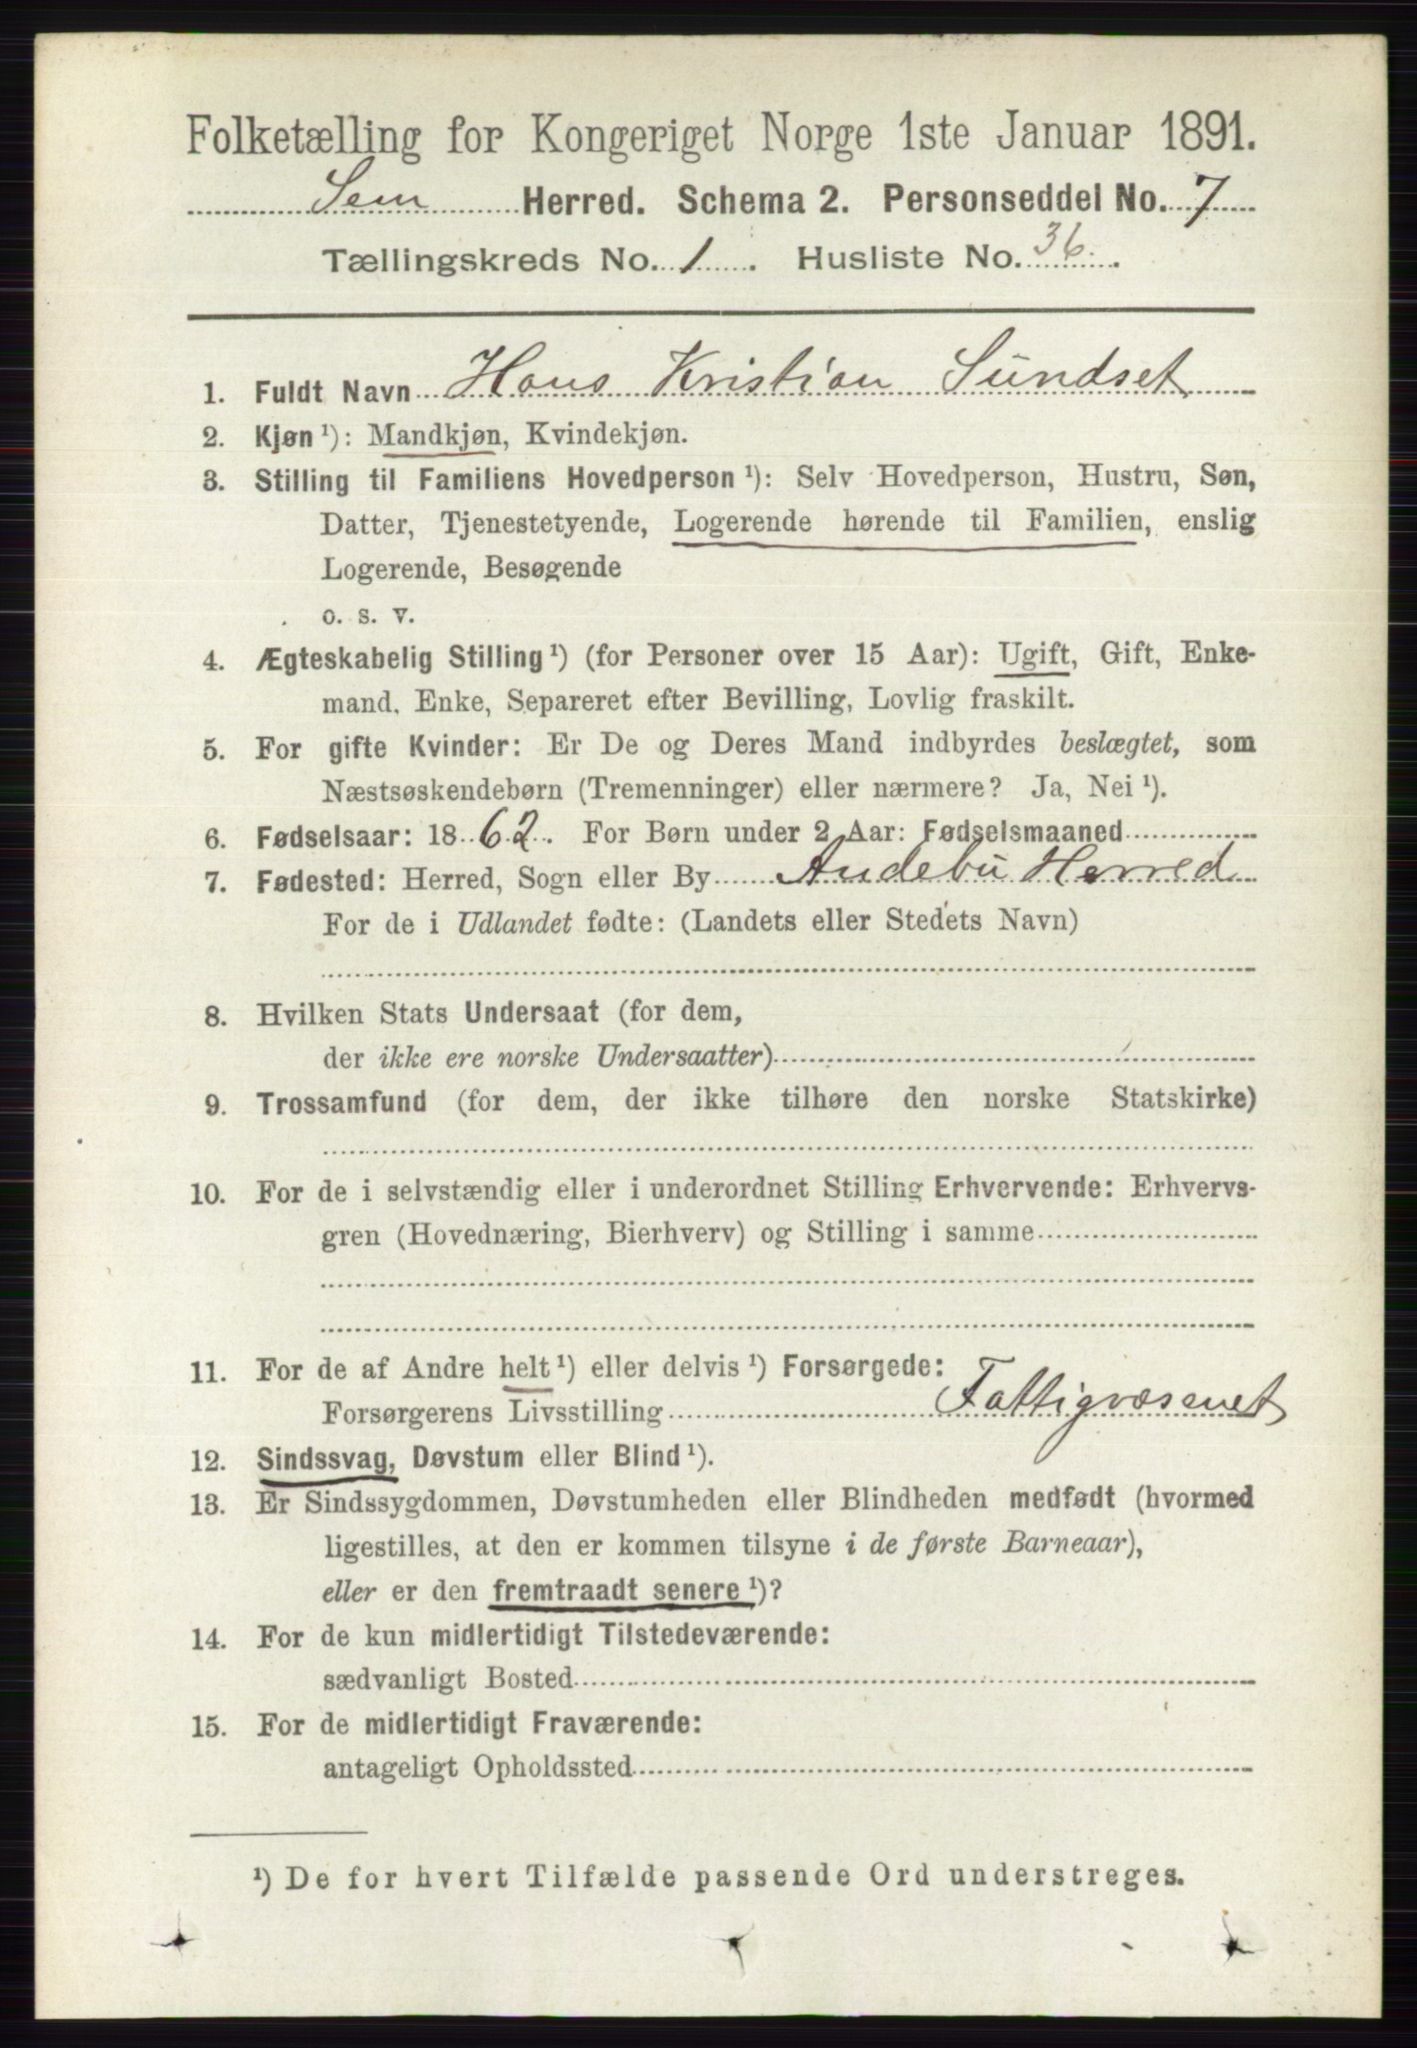 Folketælling for Kongeriget Norge 1ste Januar 1891.
Sem Herred. Schema 2. Personseddel No. 7
Tællingskreds No. 1. Husliste No. 36.
1. Fuldt Navn Hans Kristian Sundset
2. Kjøn ¹): Mandkjøn, Kvindekjøn.
3. Stilling til Familiens Hovedperson ¹): Selv Hovedperson, Hustru, Søn,
Datter, Tjenestetyende, Logerende hørende til Familien, enslig
Logerende, Besøgende
o. s. v.
4. Ægteskabelig Stilling ¹) (for Personer over 15 Aar): Ugift, Gift, Enke-
mand, Enke, Separeret efter Bevilling, Lovlig fraskilt.
5. For gifte Kvinder: Er De og Deres Mand indbyrdes beslægtet, som
Næstsøskendebørn (Tremenninger) eller nærmere? Ja, Nei ¹).
6. Fødselsaar: 1862. For Børn under 2 Aar: Fødselsmaaned
7. Fødested: Herred, Sogn eller By Andebu Herred
For de i Udlandet fødte: (Landets eller Stedets Navn)
8. Hvilken Stats Undersaat (for dem,
der ikke ere norske Undersaatter)
9. Trossamfund (for dem, der ikke tilhøre den norske Statskirke)
10. For de i selvstændig eller i underordnet Stilling Erhvervende: Erhvervs-
gren (Hovednæring, Bierhverv) og Stilling i samme
11. For de af Andre helt ¹) eller delvis ¹) Forsørgede:
Forsørgerens Livsstilling Fattigvæsenet
12. Sindssvag, Døvstum eller Blind ¹).
13. Er Sindssygdommen, Døvstumheden eller Blindheden medfødt (hvormed
ligestilles, at den er kommen tilsyne i de første Barneaar),
eller er den fremtraadt senere ¹)?
14. For de kun midlertidigt Tilstedeværende:
sædvanligt Bosted
15. For de midlertidigt Fraværende:
antageligt Opholdssted
¹) De for hvert Tilfælde passende Ord understreges.